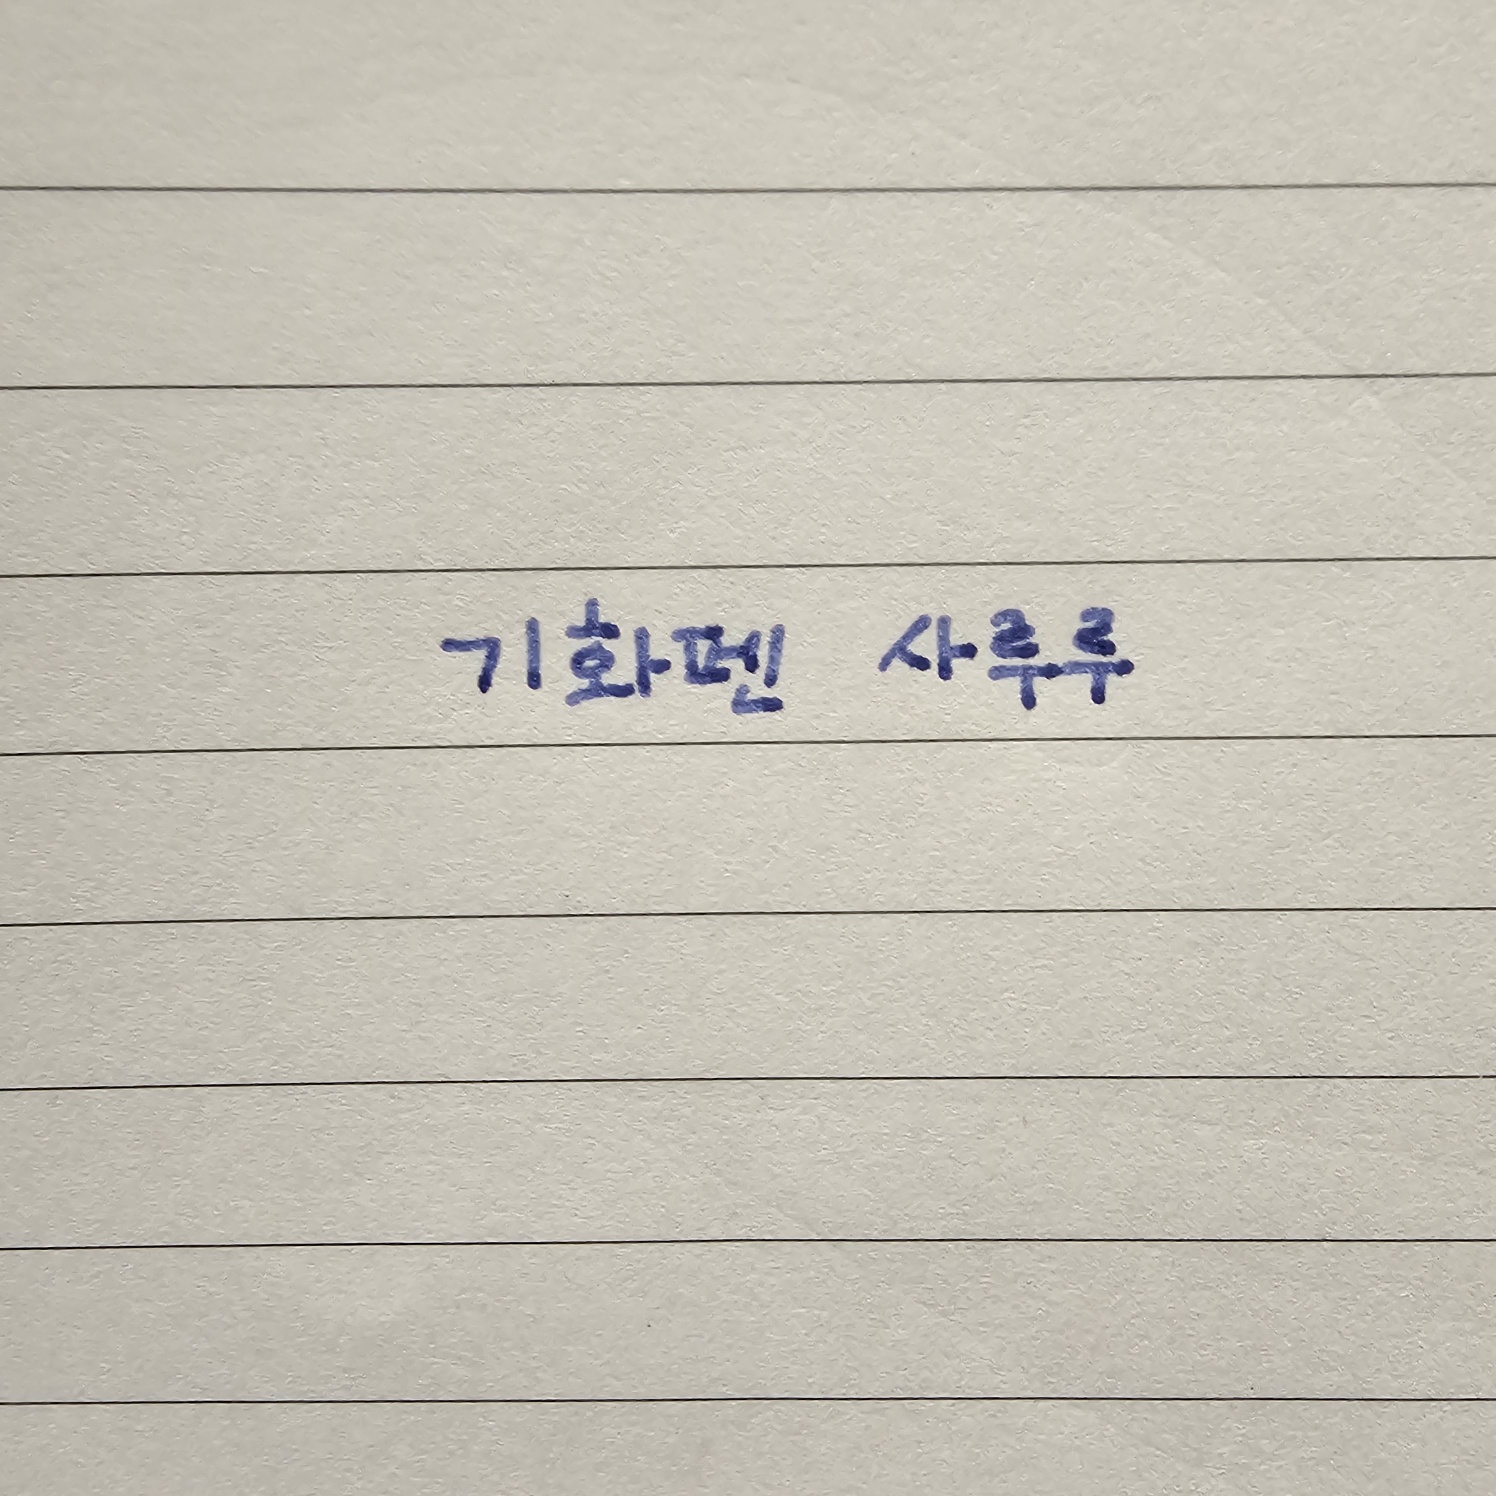 기화펜 사루루